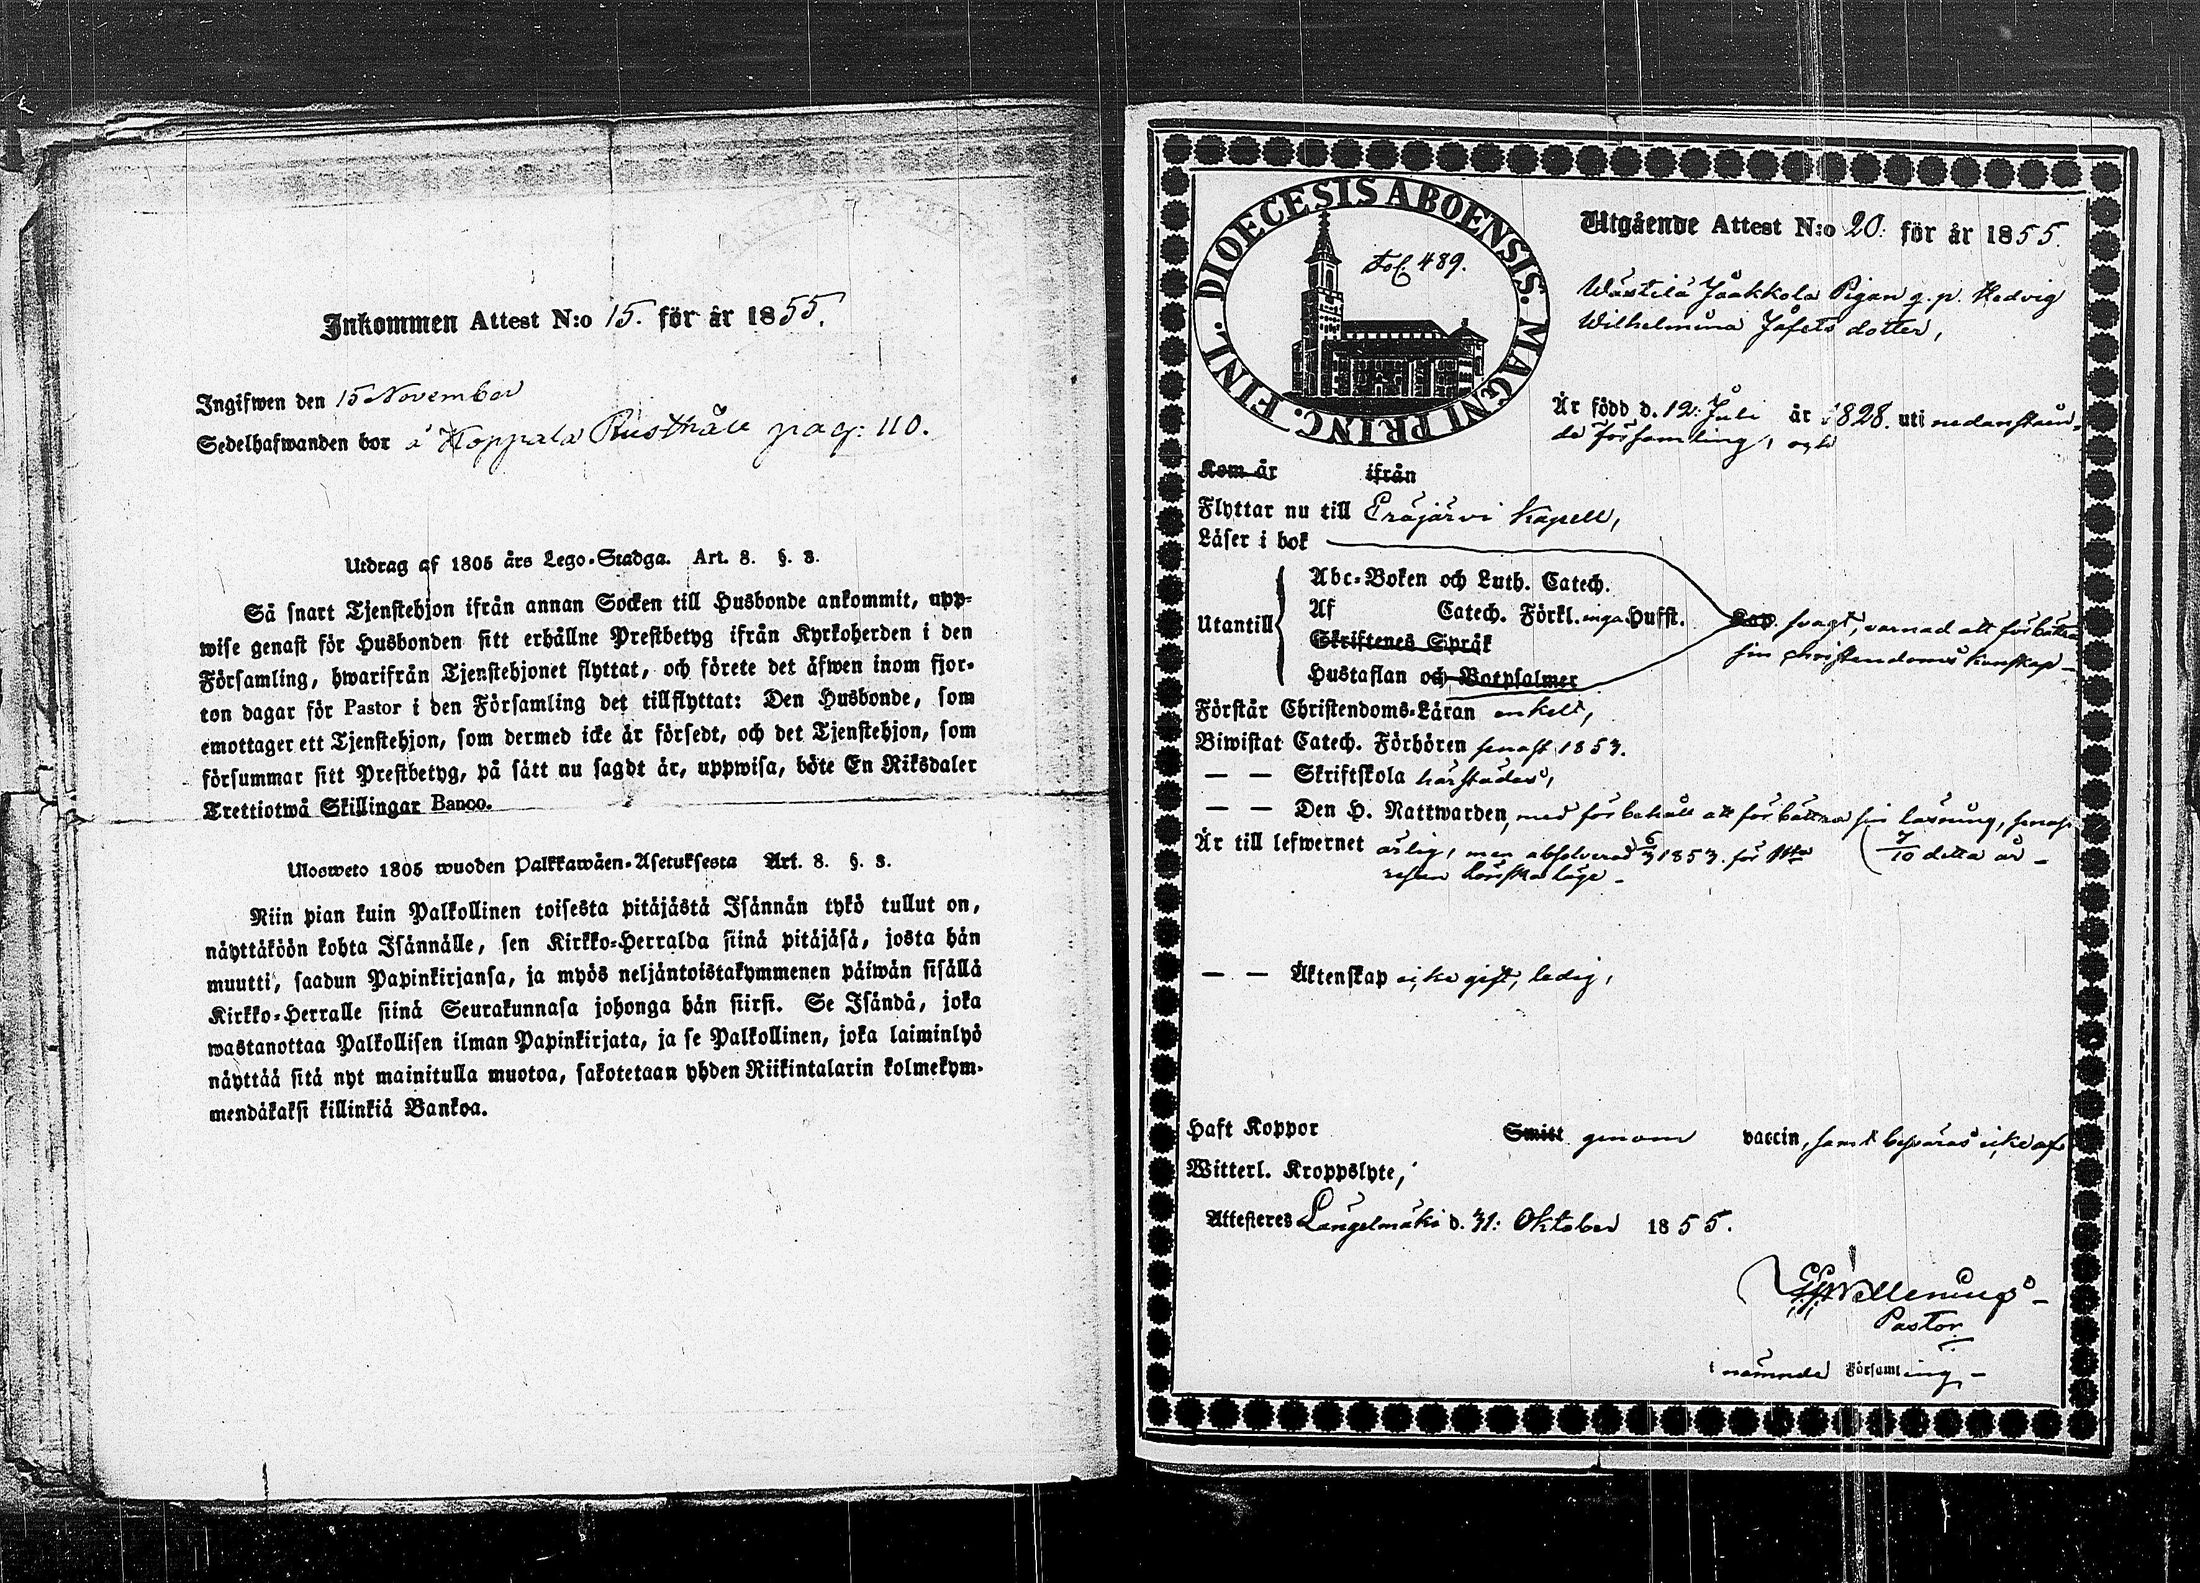 Inkommen Attest N:o 15. för år 1855.
Ingifwen den 15 November
Sedelhafwanden bor å Koppala Rusthåll pag: 110.
Utdrag af 1805 års Lego-Stadga. Art. 8. §. 3.
Så snart Tjenstehjon ifrån annan Socken till Husbonde ankommit, upp-
wise genast för Husbonden sitt erhållne Prestbetyg ifrån Kyrkoherden i den
Församling, hwarifrån Tjenstehjonet flyttat, och förete det äfwen inom fjor-
ton dagar för Pastor i den Församling det tillflyttat: Den Husbonde, som
emottager ett Tjenstehjon, som dermed icke är försedt, och det Tjenstehjon, som
försummar sitt Prestbetyg, på sätt nu sagdt är, uppwisa, böte En Riksdaler
Trettiotwå Skillingar Banco.
Ulosweto 1805 wuoden Palkkawäen-Asetuksesta Art. 8. §. 3.
Niin pian kuin Palkollinen toisesta pitäjästä Isännän tykö tullut on,
näyttäköön kohta Isännälle, sen Kirkko-Herralda siinä pitäjäsä, josta hän
muutti, saadun Papinkirjansa, ja myös neljäntoistakymmenen päiwän sisällä
Kirkko-Herralle siinä Seurakunnasa johonga hän siirsi. Se Isändä, joka
wastanottaa Palkollisen ilman Papinkirjata, ja se Palkollinen, joka laiminlyö
näyttää sitä nyt mainitulla muotoa, sakotetaan yhden Riikintalarin kolmekym-
mendäkaksi killinkiä Bankoa.
DIOECESIS ABOENSIS. MAGNI PRINC. FINL.
Fol. 489.
Utgående Attest N:o 20. för år 1855.
Wästilä Jaakkola Pigan q. p. Hedvig
Wilhelmina Jafets dotter,
Är född d. 12. Juli år 1828. uti nedanståen-
de församling, och
Kom år ifrån
Flyttar nu till Eräjärvi Kapell,
Läser i bok
Utantill
Abc-Boken och Luth. Catech.
Af Catech. Förkl. inga Hufst.
Skriftenes Språk
Hustaflan och Botpsalmer
svagt, varnad att förbättra
sin christendoms kunskap
Förstår Christendoms-Läran enkelt,
Biwistat Catech. Förhören senast 1853.
— — Skriftskola härstädes,
— — Den H. Nattwarden, med förbehåll att förbättra sin läsning, senast
7/10 detta år
Är till lefwernet ärlig, men absolverad 6/3 1853. för 1sta
resan lönskaläge
— — Äktenskap icke gift, ledig,
Haft Koppor Smitt genom vaccin, samt besväras icke af
Witterl. Kroppslyte,
Attesteres Längelmäki d. 31: Oktober 1855.
Pastor
i nämnde Församling,